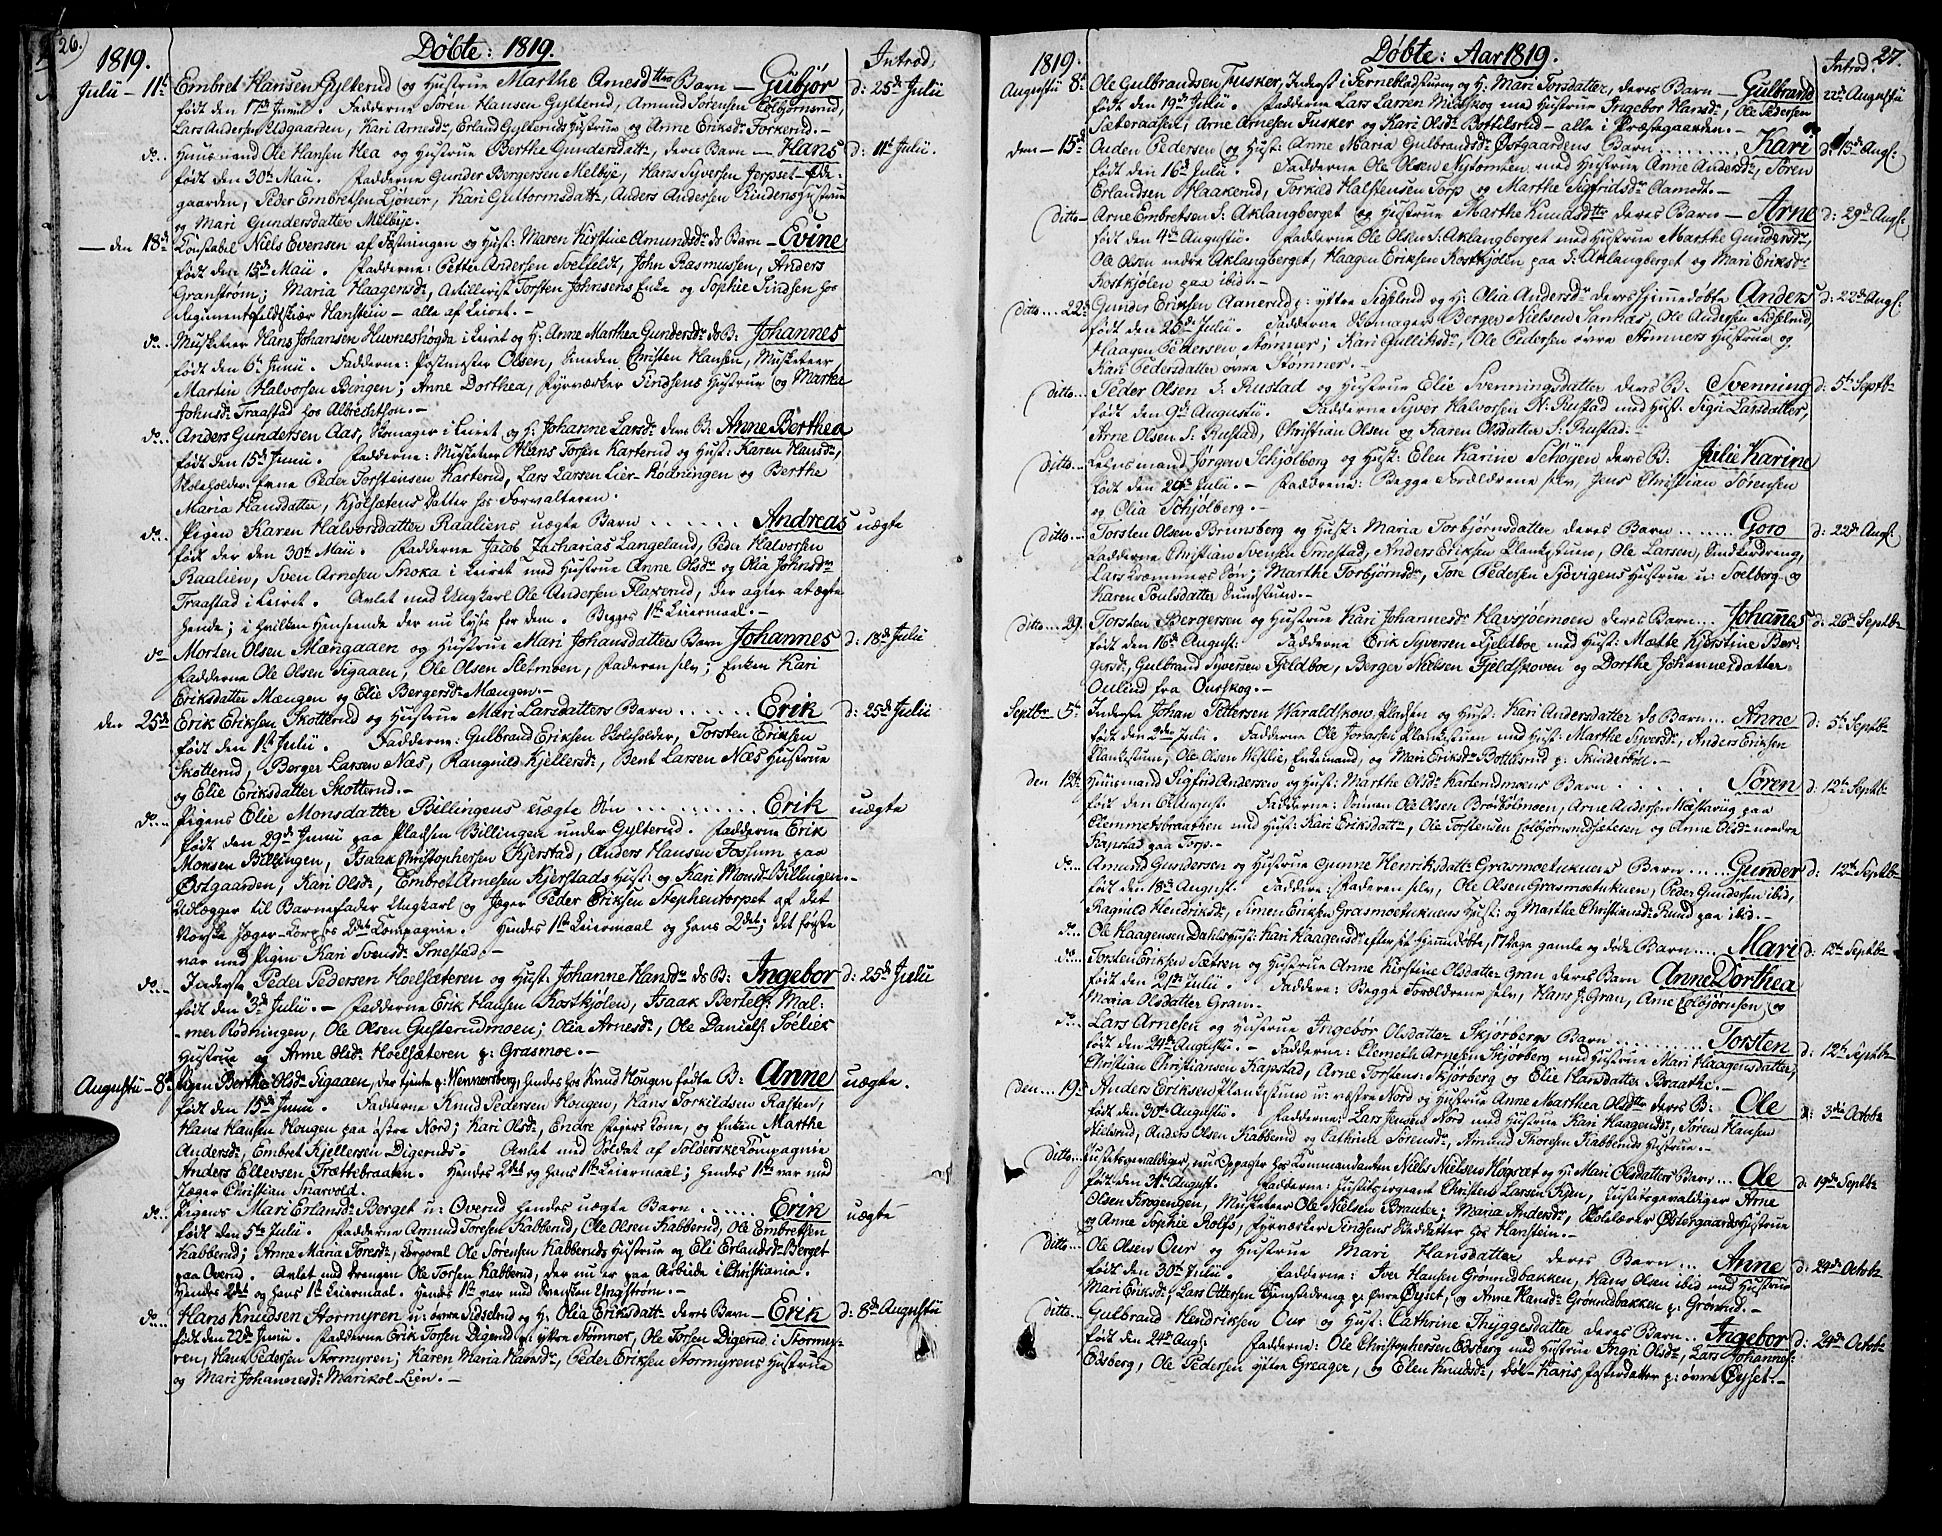 26.)
1819. Døbte: 1819. Introd:
Julii - 11te Embret Hansen Gylterud og Hustrue Marthe Arnesdtrs Barn - Gubjør d: 25de Julii
født den 17de Junii. Fadderne Søren Hansen Gylterud, Amund Sørensen Colbjørnsrud,
Lars Andersen Udgaarden, Kari Arnesdr, Erland Gylteruds Hustrue og Anne Eriksdr Forkerud.-
do.. Huusmand Ole Hansen Hea og Hustrue Berthe Gundersdatt, deres Barn - Hans d: 11te Julii.
født den 30te Maii. Fadderne Gunder Bergersen Melbye, Hans Syversen Jerpset-øde-
gaarden, Peder Embretsen Ljöner, Kari Guttormsdatt, Anders Andersen Rindens Hustrue
og Mari Gundersdatter Melbye.
- den 18de Constabel Niels Evensen af Fæstningen og Hust: Maren Kirstine Amundsdr ds Barn - Evine
født den 15de Maii. Fadderne: Petter Andersen Soelfeldt, John Rasmussen, Anders
Granstrøm; Maria Haagensdr, Artillerist Torsten Johnsens Enke og Sophie Sindsen hos
Regimentsfeldtskiær Hanstein - alle af Leiret.-
do.. Musketeer Hans Johansen Huvneshögda i Leiret og H: Anne Marthea Gundersdr ds B: Johannes
født den 6te Junii. Fadderne: Postmester Olsen, Smeden Christen Hansen, Musketeer
Martin Halvorsen Bingen; Anne Dorthea, Fyrværker Sindsens Hustrue og Marthe
Johnsdr Traastad hos Albrechtson.-
do.. Anders Gundersen Aas, Skomager i Leiret og H: Johanne Larsdr deres B: Anne Berthea
født den 15de Junii. Fadderne: Musketeer Hans Torsen Karterud og Hust: Karen Hansdr,
Skoleholder Erne Peder Torstensen Karterud, Lars Larsen Lier-Rödningen og Berthe
Maria Hansdatter, Kjølsætens Datter hos Forvalteren.
do... Pigen Karen Halvorsdatter Raaliens uægte Barn ...... Andreas uægte
født der den 30te Maii. Fadderne Jacob Zacharias Langeland, Peder Halvorsen
Raalien, Sven Arnesen Snoka i Leiret med Hustrue Anne Olsdr og Olia Johnsdr
Traastad i Leiret. Avlet med Ungkarl Ole Andersen Flaxerud, der agter at ægte
hende; i hvilken Henseende der nu lyses for dem. Begges 1ste Leiermaal.-
do Morten Olsen Mængaaen og Hustrue Mari Johansdatters Barn Johannes d: 18de Julii
Fadderne Ole Olsen Sigaaen, Ole Olsen Sletmoen, Faderen selv; Enken Kari
Eriksdatter Mangen og Elie Bergersdr Mængen.-
den 25de Erik Eriksen Skotterud og Hustrue Mari Larsdatters Barn ...... Erik d: 25de Julii
født den 1ste Julii. Fadderne: Gulbrand Eriksen Skoleholder, Torsten Eriksen
Skotterud, Berger Larsen Næs, Rangnild Kjellersdr, Bent Larsen Næs Hustrue
og Elie Eriksdatter Skotterud.-
do... Pigens Elie Monsdatter Billingens uægte Søn .......... Erik uægte
født den 29de Junii paa Pladsen Billingen under Gylterud. Fadderne Erik
Monsen Billingen, Isaak Christophersen Kjerstad, Anders Hansen Fossum paa
Østgaarden; Kari Olsdr, Embret Arnesen Kjerstads Hust: og Kari Monsdr Billingen.-
Udlægger til Barnefader Ungkarl og Jæger Peder Eriksen Stephentorpet af det
Norske Jæger-Corps's 2det Compagnie. Hendes 1ste Leiermaal og hans 2det; det første
var med Pigen Kari Svendsdr Snestad.-
do.. Inderste Peder Pedersen Hoelsæteren og Hust: Johanne Hansdr ds B: Ingebor d: 25de Julii
født den 3de Julii. - Fadderne Erik Hansen Rostkjölen, Isaak Bertels: Mal-
-mer Rödningen, Ole Olsen Gusterudmoen; Olia Arnesdr, Ole Daniels: Söeliek
Hustrue og Anne Olsdr Hoelsæteren p: Grasmoe.-
Augustii - 8de Pigen Berthe Olsdr Sigaaen, der tjente p: Vennersberg, hendes hos Knud Hougen fødte B: Anne uægte.
født den 15de Junii. Fadderne Knud Pedersen Hougen, Hans Torkildsen Rasten,
Hans Hansen Hougen paa østre Nord; Kari Olsdr, Endre Fejers Kone, og Enken Marthe
Andersdr, Embret Kjellersen Digeruds. Avlet med Soldat af Solöerske Compagnie
Anders Ellevsen Trættebraaten. Hendes 2det og hans 1ste Leiermaal; hendes 1ste var med
Jæger Christian Snarvold.
do... Pigens Mari Erlandsdr Berget u: Overud hendes uægte Barn ...... Erik uægte
født den 5te Julii. Fadderne Amund Toresen Kabberud, Ole Olsen Kabberud, Ole Embretsen
Kabberud; Anne Maria Toresdr, Corporal Ole Sørensen Kabberuds Hustrue og Eli Erlandsdr Berget
paa Overud. Avlet med Drengen Ole Torsen Kabberud, der nu er paa Arbeide i Christiania.
Hendes 2det og hans 1ste Leiermaal. Hendes 1ste var med Svensken Engström.-
do... Hans Knudsen Stormyren u: øvre Sidselrud og H: Olia Eriksdatt deres Barn - Erik d: 8de Augustii
født den 22de Junii. Fadderne Erik Torsen Digerud p: yttre Stømner, Ole Torsen Digerud i Stormy-
ren, Hans Pedersen Stormyren; Karen Maria Hansdr, Peder Eriksen Stormyrens Hustrue
og Mari Johannesdr Marikol-Lien.-
27.
1819. Døbte: Aar 1819. Introd.
Augustii 8de Ole Gulbrandsen Fusker, Inderst i Tornebladstuen og H: Mari Torsdatter, deres Barn - Gulbrand 22de Augustii
født den 19de Julii. Fadderne Lars Larsen Mildskog med Hustrue Ingebor Hansdr, Ole Pedersen
Sæteraasen; Arne Arnesen Fusker og Kari Olsdr Bottilsrud - alle i Præstegaarden.-
den - 15de Auden Pedersen og Hust: Anne Maria Gulbrandsdr Østgaardens Barn ........ Kari d: 15de Augs:
født den 16de Julii. Fadderne Ole Olsen Nytomten med Hustrue Anne Andersdr, Sören
Erlandsen Haakerud, Torkild Halstensen Torp og Marthe Sigfridsdr Aamodt.-
ditto - Arne Embretsen S: Aklangberget og Hustrue Marthe Knudsdtr deres Barn - Arne d: 29de Augs:
født den 4de Augustii. Fadderne Ole Olsen S: Aklangberget med Hustrue Marthe Gundersdr,
Ole Olsen nedre Aklangberget, Haagen Eriksen Rostkjölen paa S: Aklangberget og Mari Eriksdr
Rostkjölen paa ibid.-
ditto... 22de Gunder Eriksen Aanerud p: yttre Sidselrud og H: Olia Andersdr deres hjemmedøbte Anders d: 22de Augs:
født den 26de Julii. Fadderne Skomager Berger Nielsen Sannæs, Ole Andersen Sidselrud,
Haagen Pedersen Stømner; Kari Gulliksdr, Ole Pedersen øvre Stømners Hustrue og
Kari Pedersdatter øvre Stømner.-
ditto... Peder Olsen S: Rustad og Hustrue Elie Svenningsdatter deres B: Svenning d: 5te Septbr
født den 9de Augustii. Fadderne Syver Halvorsen N: Rustad med Hust: Sigri Larsdatter,
Arne Olsen S: Rustad, Christian Olsen og Karen Olsdatter S: Rustad.-
ditto... Leensmand Jørgen Schjølberg og Hust: Elen Karine Schøyen deres B: Julie Karine
født den 29de Julii.- Fadderne: Begge Forældrene selv, Jens Christian Sørensen
og Olia Schjølberg.-
ditto... Torsten Olsen Brunsberg og Hust: Maria Torbjørnsdatter deres Barn ...... Goro d: 22de Augs:
Fadderne Christian Svensen Snestad, Anders Eriksen Plankestuen, Ole Larsen, Sindkædreng,
Lars Kræmmers Søn; Marthe Torbjørnsdr, Tore Pedersen Sjövigens Hustrue u: Soelberg og
Karen Poulsdatter Sundstuen.-
ditto .. 29. Torsten Bergersen og Hustrue Kari Johannesdr Havsjömoen deres Barn... Johannes d: 26de Septbr
født den 16de August: Fadderne Erik Syversen Fjeldboe med Hust: Mætte Kjerstine Ber-
gersdr, Gulbrand Syversen Fjeldboe, Berger Nielsen Fjeldskoven og Dorthe Johannesdatter
Oulund fra Ourskog.-
Septbr 5te Inderste Johan Pettersen Waraldskov Pladsen og Hust: Kari Andersdatter ds Barn... Anne d: 5te Septbr
født den 2den Julii. Fadderne Ole Jonassen Plankestuen med Hust: Marthe Syversdr, Anders Eriksen
Plankestuen, Ole Olsen Westlie, Enkemand, og Mari Eriksdr Bottilsrud p: Skinderböl.-
den 12te Huusmand Sigfrid Andersen og Hust: Marthe Olsdr Karterudmoens Barn ...... Sören d: 12te Septbr
født den 6te August: Fadderne: Snman Ole Olsen Brödholmoen, Arne Andersen Westavug paa
Clemmetsbraathen med Hust: Kari Eriksdatt, Ole Torstensen Colbjørnsrudsæteren og Anne Olsdr nordre
Kapstad paa Torp.-
do... Amund Gundersen og Hustrue Gunne Henriksdatt Grasmoetukuens Barn .... Gunder d: 12te Septbr
født den 18de August: Faddere: Faderen selv, Ole Olsen Grasmoetukuen, Peder Gundersen ibid,
Ragnild Hendriksdr, Simen Eriksen Grasmoetukuens Hust: og Marthe Christiansdr Rund paa ibid.-
do... Ole Haagensen Dahls Hust: Kari Haagensdr efter sit hjemmedøbte, 17 Dage gamle og døde Barn .... Mari d: 12te Septbr
do... Torsten Eriksen Sætren og Hustrue Anne Kirstine Olsdatter Gran deres Barn Anne Dorthea
født den 21de Julii. Faddere: Begge Forældrene selv, Hans J: Gran, Arne Colbjörnsen og
Maria Olsdatter Gran.-
do... Lars Arnesen og Hustrue Ingebor Olsdatter Skjørbergs Barn .......... Torsten d: 12te Septbr
født den 29de Augustii.- Fadderne: Clemeth Arnesen Skjörberg med Hustrue Mari Haagensdatter,
Christian Christiansen Kapstad, Arne Torstens: Skjörberg og Elie Hansdatter Braathe.-
den... 19de Anders Eriksen Plankestuen u: vestre Nord og Hustrue Anne Marthea Olsdtr deres B: Ole d: 3die Octobr
født den 30te Augustii. Fadderne: Lars Jensen Nord med Hustrue Kari Haagensdr, Søren Hansen
Nielsrud, Anders Olsen Kabberud og Cathrina Sørensdr, Amund Thoresen Kabberuds Hustrue.-
ditto... Justitsgevaldiger, nu Oppasser hos Kommandanten Niels Nielsen Høgsæt og H: Mari Olsdatters Barn... Ole d: 19de Septbr
født den 31te August. Fadderne: Justitssergeant Christen Larsen Kjen, Justitsgevaldiger Arne
Olsen Krogengen, Musketeer Ole Nielsen Brauter; Maria Andersdr, Skolelærer Østergaards Hustrue
og Anne Sophie Rolfs, Fyrværker Sindsens Steddatter hos Hanstein.-
ditto... Ole Olsen Our og Hustrue Mari Hansdatter deres Barn... Anne d: 24de Octobr
født den 30te Julii. Fadderne: Iver Hansen Grønnudbakken, Hans Olsen ibid med Hustrue
Mari Eriksdr, Lars Ottersen Tjenstedreng p: øvre Øyset, og Anne Hansdr Grønnudbakken p: Grønnud.-
ditto... Gulbrand Hendriksen Our og Hust: Cathrine Thyggesdatter deres Barn.. Ingebor d: 24de Octobr
født den 24de Augs: Fadderne: Ole Christophersen Edsberg med Hustrue Ingri Olsdr, Lars Johannes:
Edsberg, Ole Pedersen yttre Greager, og Elen Knudsdr, döl-Karis Fosterdatter p: øvre Øyset.-